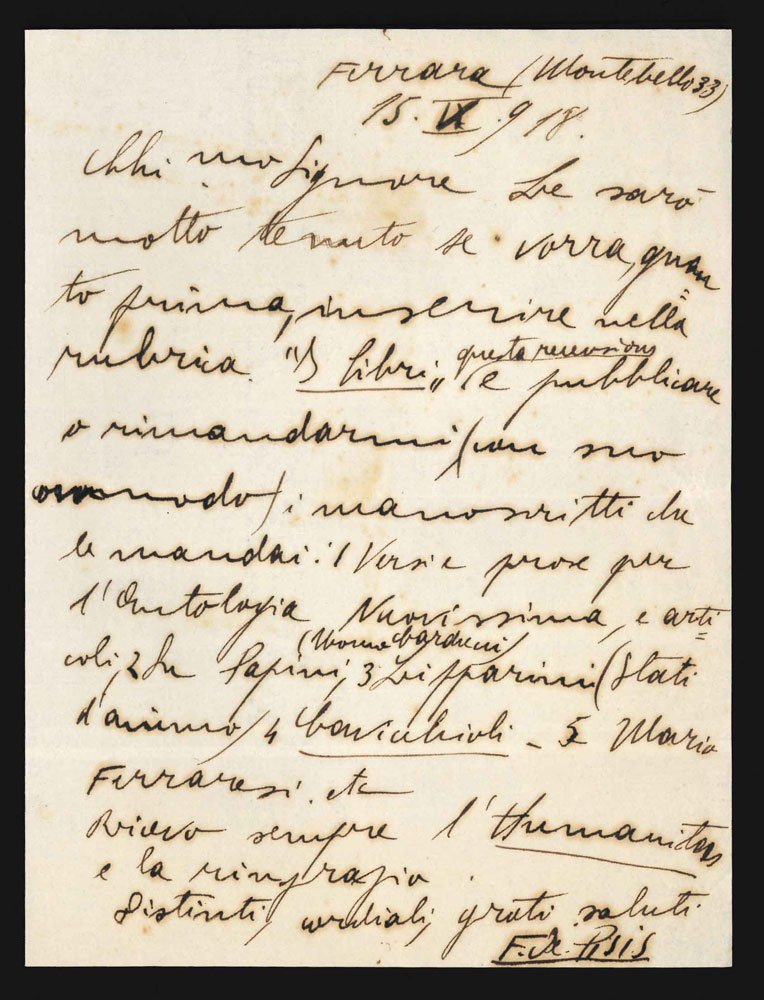 Ferrara (Montebello 33)
15. IX. 918.
Chi.mo Signore Le sarò
molto tenuto se vorrà, quan
to prima, inserire nella
rubrica "I libri" questa recensione e pubblicare
o rimandarmi (con suo
comodo) i manoscritti che
le mandai: 1 Versi e prose per
l'Antologia Nuovissima, e arti=
coli, 2 Su Papini, (Uomo Carducci) 3 Lipparini (Stati
d'animo) 4 Cavicchioli - 5 Mario
Ferraresi. etc
Ricevo sempre l'Humanitas
e la ringrazio.
Distinti, cordiali, grati saluti
F. de Pisis